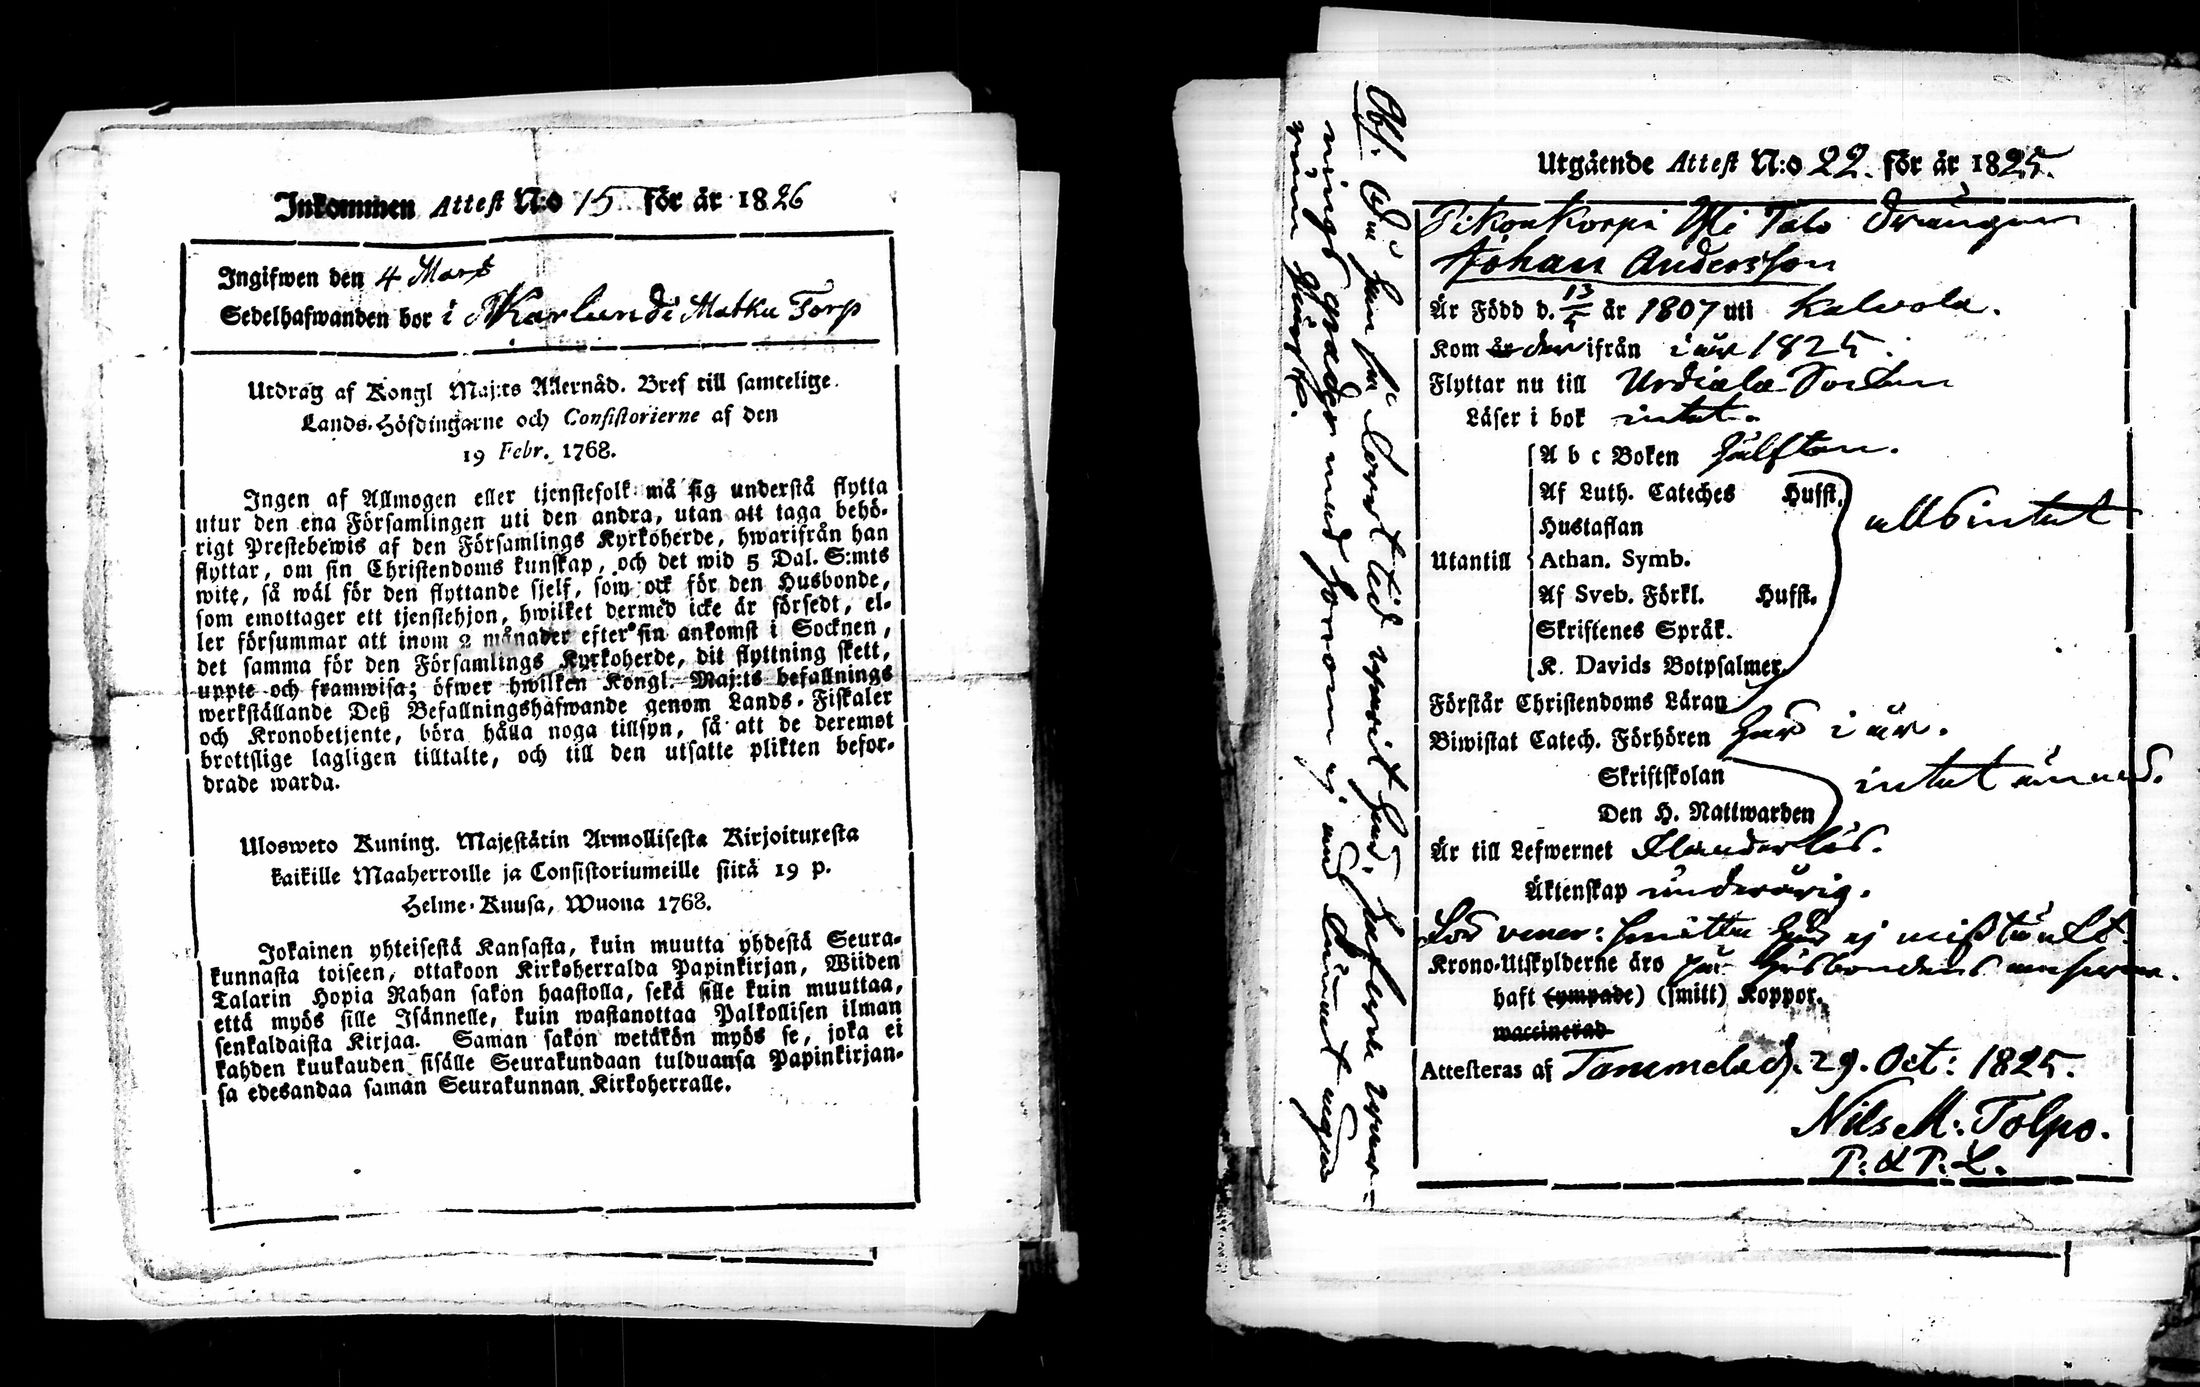 Inkommen Attest N:o 15 för år 1826
Ingifwen den 4 Mars
Sedelhafwanden bor i Karlund i Matku Torp
Utdrag af Kongl Maj:ts Allernåd. Bref till samtelige
Lands-Höfdingarne och Consistorierne af den
19 Febr. 1768.
Ingen af Allmogen eller tjenstefolk må sig understå flytta
utur den ena Församlingen uti den andra, utan att taga behö-
rigt Prestebewis af den Församlings Kyrkoherde, hwarifrån han
flyttar, om sin Christendoms kunskap, och det wid 5 Dal. S:mts
wite, så wäl för den flyttande sjelf, som ock för den Husbonde,
som emottager ett tjenstehjon, hwilket dermed icke är försedt, el-
ler försummar att inom 2 månader efter sin ankomst i Socknen,
det samma för den Församlings Kyrkoherde, dit flyttning skett,
uppte och framwisa; öfwer hwilken Kongl. Maj:ts befallnings
werkställande Deß Befallningshafwande genom Lands-Fiskaler
och Kronobetjente, böra hålla noga tillsyn, så att de deremot
brottslige lagligen tilltalte, och till den utsatte plikten befor-
drade warda.
Ulosweto Kuning. Majestätin Armollisesta Kirjoituxesta
kaikille Maaherroille ja Consistoriumeille siitä 19 p.
Helme-Kuusa, Wuona 1768.
Jokainen yhteisestä Kansasta, kuin muutta yhdestä Seura-
kunnasta toiseen, ottakoon Kirkoherralda Papinkirjan, Wiiden
Talarin Hopia Rahan sakon haastolla, sekä sille kuin muuttaa,
että myös sille Isännelle, kuin wastanottaa Palkollisen ilman
senkaldaista Kirjaa. Saman sakon wetäkön myös se, joka ei
kahden kuukauden sisälle Seurakundaan tulduansa Papinkirjan-
sa edesandaa saman Seurakunnan Kirkoherralle.
Utgående Attest N:o 22. för år 1825.
Pikonkorpi Yli Talo Drängen
Johan Andersson
Är Född d. 13/5 år 1807 uti Kalvola.
Kom är der ifrån i år 1825.
Flyttar nu till Urdiala Socken
Läser i bok intet.
Utantill
A b c Boken hälften.
Af Luth. Cateches Hufst.
Hustaflan
Athan. Symb.
Af Sveb. Förkl. Hufst.
Skriftenes Språk.
K. Davids Botpsalmer
allsintet
Förstår Christendoms Läran
Biwistat Catech. Förhören här i år.
Skriftskolan
Den H. Nattwarden
intet ännu.
Är till Lefwernet Klanderlös.
Äktenskap underårig.
För vener: smitta här ej misstänkt
Krono-Utskylderne äro på Husbondens ansvar.
haft (ympade) (smitt) Koppor.
waccinerad
Attesteras af Tammela d. 29. Oct: 1825.
Nils M: Tolpo.
P: & P: L.
Obs. Som han en kort tid varit här, hafva
med honom ej